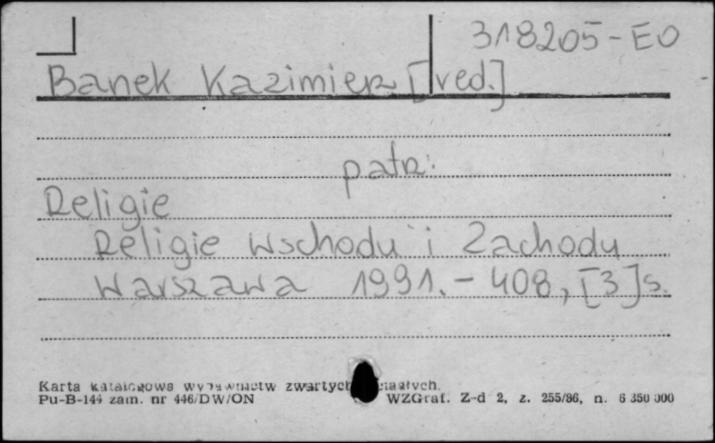 318205-EO
Banek Kazimierz [red.]
patrz:
Religie
Religie Wschodu i Zachodu
Warszawa 1991. - 408, [3] s.
Karta katalogowa wydawnictw zwartych
Pu-B-144 zam. nr 446/DW/ON WZGraf. Z-d 2, z. 255/86, n. 6 350 000